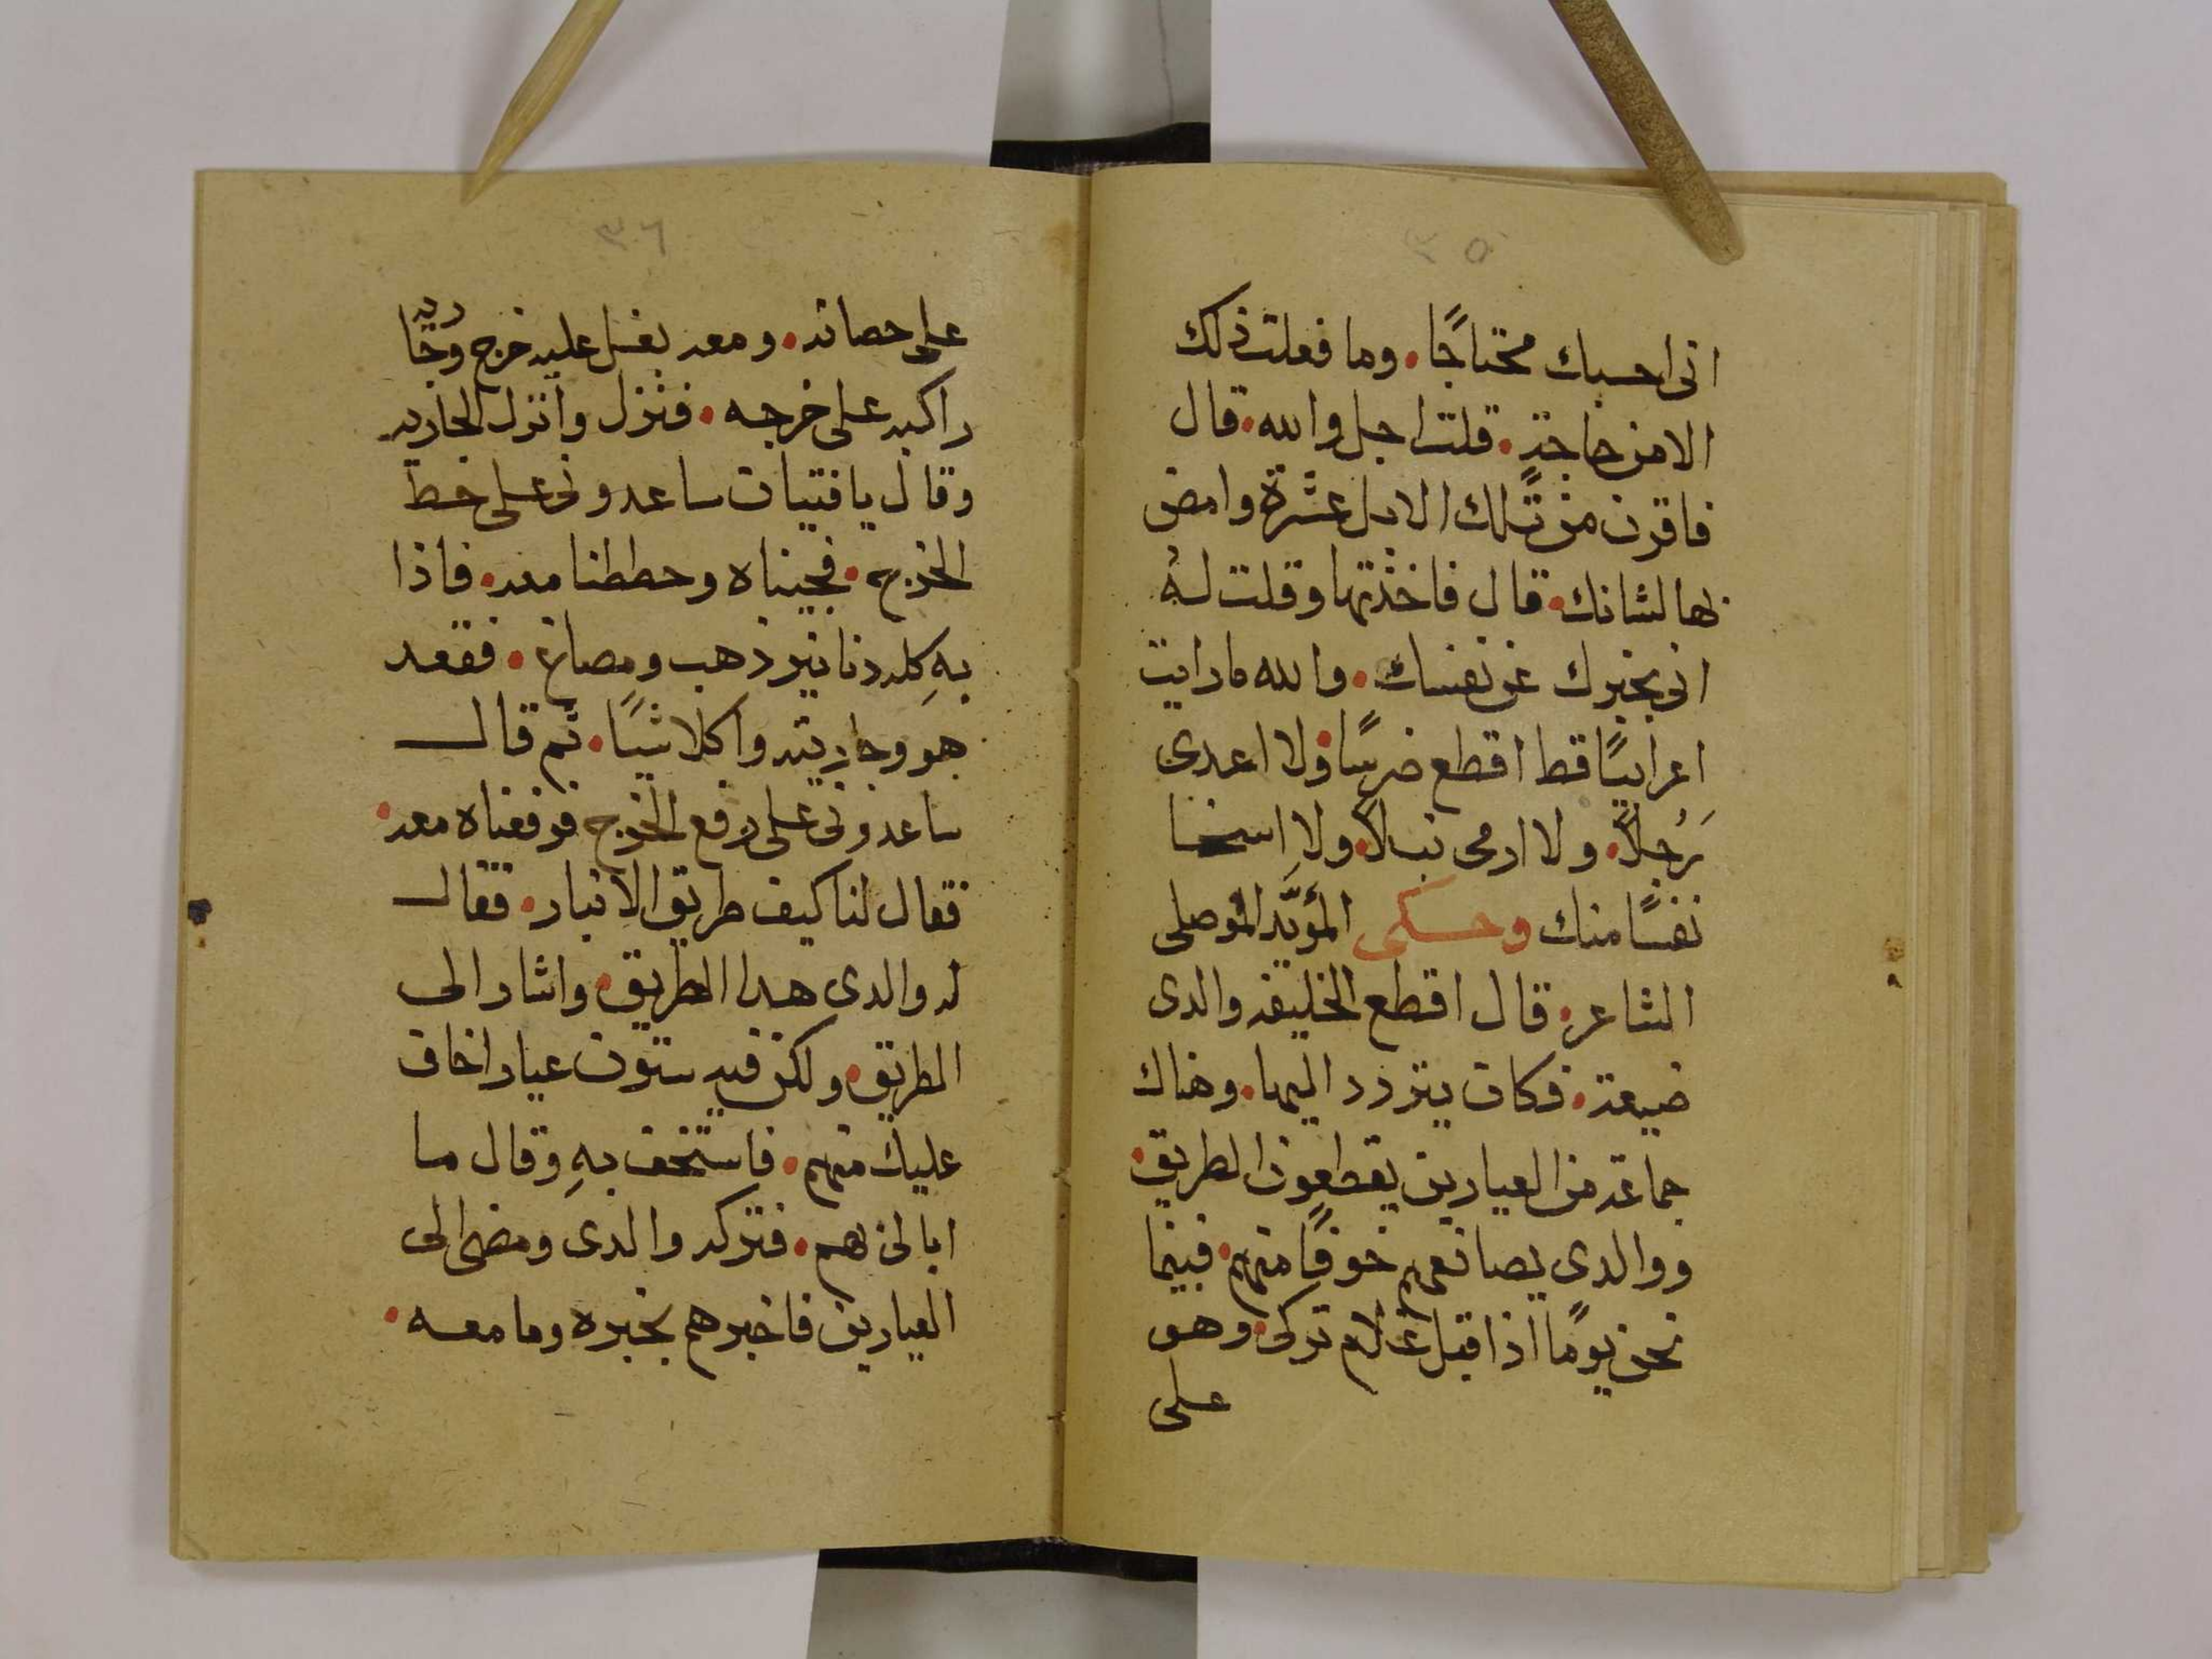 ٣٥
انى احسبك محتاجًا. وما فعلت ذلك
الا من حاجةٍ. قلت اجل والله. قال
فاقرن من تلك الابل عشرة وامض
بها لشانك. قال فاخذتها وقلت لهُ
انى بخبرك عن نفسك. والله ما رايت
اعرابيًا قط اقطع ضرسًا ولا اعدى
رَجُلاً. ولا ارمى نبلاً. ولا اسخا
نفسًا منك وحكى المؤيَّد الموصلى
الشاعر. قال اقطع الخليفه والدى
ضيعة. فكان يتردد اليها. وهناك
جماعه من العيارين يقطعون الطريق.
ووالدى يصانعهم خوفًا منهم. فبينما
نحن يومًا اذا قبل غلام تركى. وهو
على
٣٦
على حصانه. ومعه بغل عليه خرج وجَاريه
راكبه على خرجه. فنزل وانزل الجاريه
وقال يا فتيان ساعدونى على حط
الخرج. فجيناه وحططنا معه. فاذا
بهِ كله دنانير ذهب ومصاغ. فقعد
هو وجاريته واكلا شيًا. ثم قال
ساعدونى على رفع الخرج فرفعناه معه.
فقال لنا كيف طريق الانبار. فقال
له والدى هدا الطريق. واشار الى
الطريق. ولكن فيه ستون عيار اخاف
عليك منهم. فاستخف بهِ وقال ما
ابالى بهم. فتركه والدى ومضى الى
العيارين فاخبرهم بخبره وما معه.